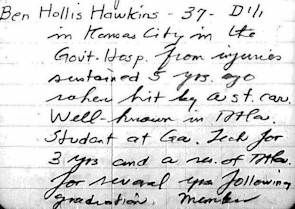 Ben Hollis Hawkins - 37 - Di
in Kansas City in the
Govt. Hosp. from injuries
sustained 5 yrs. ago
when hit by a st. car.
Well-known in Atla.
Student at Ga. Tech for
3 yrs and a res. of Atla.
for several yrs following
graduation. Member